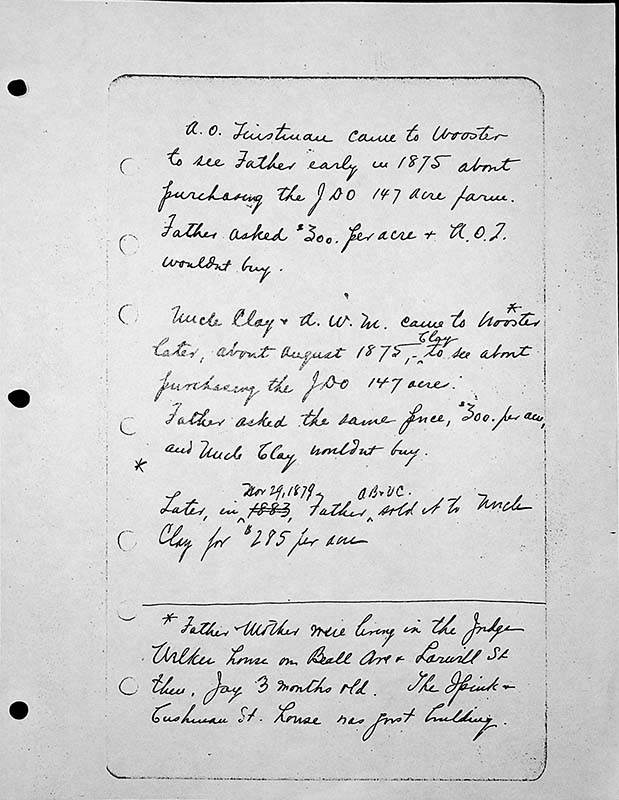 A.O. Tinstman came to Wooster
to see Father early in 1875 about
purchasing the JDO 147 acre farm.
Father asked $300. per acre + A.O.T.
wouldnt buy.
Uncle Clay + A. W. M. came to Wooster *
Clay
later, about August 1875, - to see about
purchasing the JDO 147 acres.
Father asked the same price, $300. per acre,
and Uncle Clay wouldnt buy.
*
Nov 29, 1879 AB+UC.
Later, in 1883, Father sold it to Uncle
Clay for $285 per acre
* Father + Mother were living in the Judge
Wilker house on Beall Ave + Larwill St
then, Jay 3 months old. The Spink +
Cushman St. house was just building.